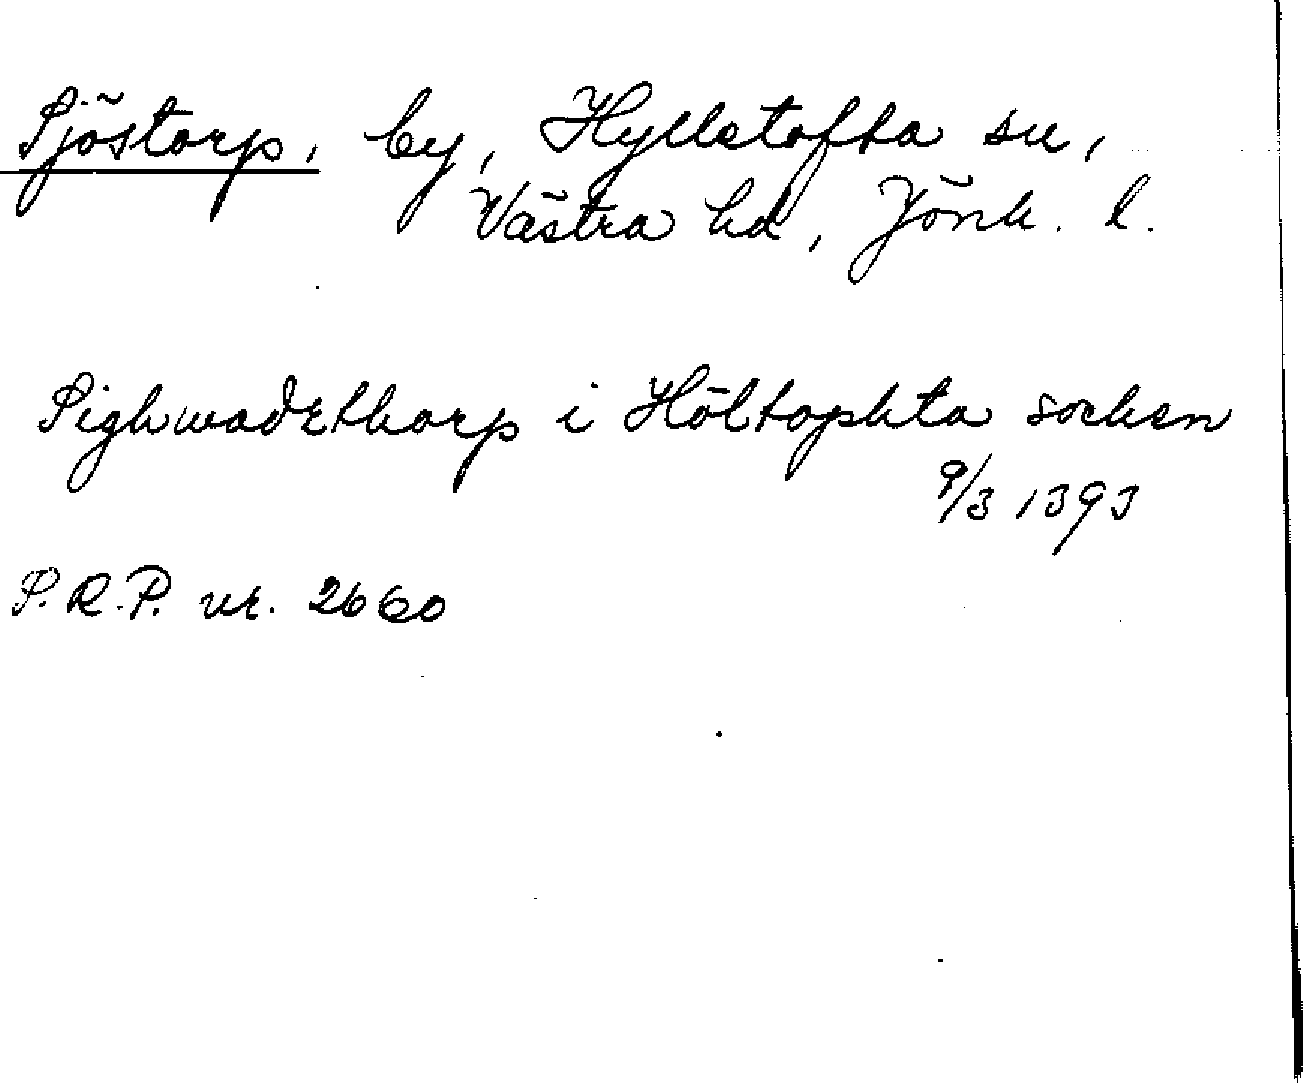 Sjöstorp, by, Hylletofta sn,
Västra hd, Jönk. l.
Sighwadzthorp i Höltophta socken
9/3 1393
S.R.P. nr. 2660